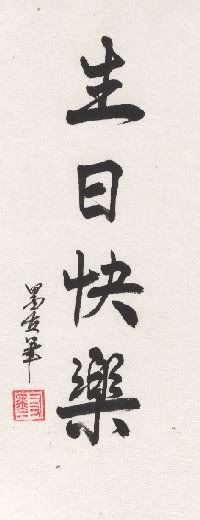 生日快樂